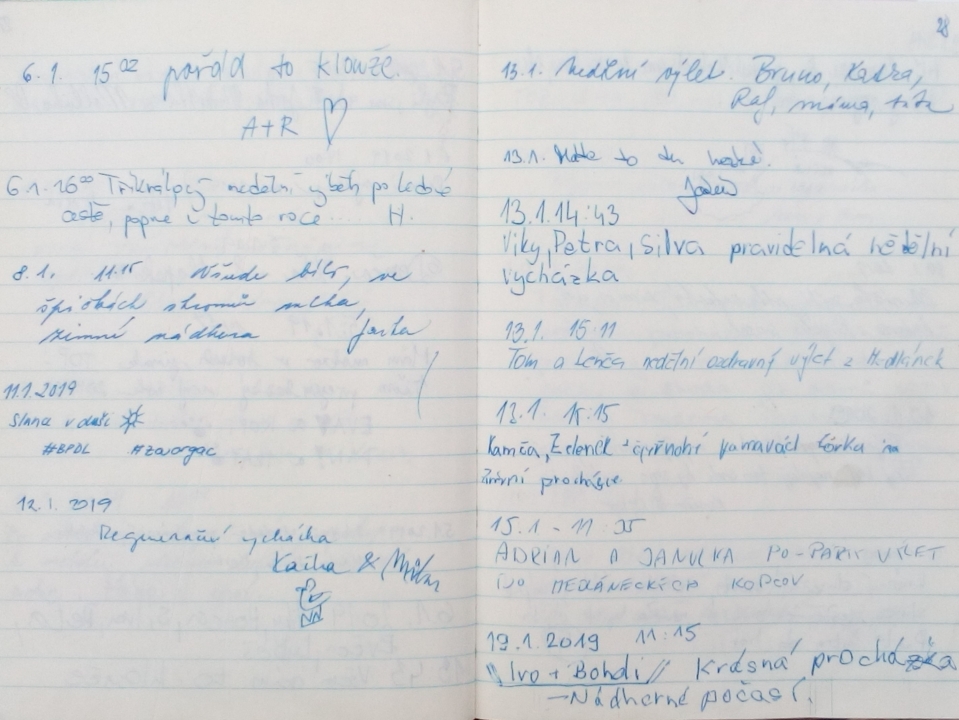 6.1. 15⁰² pořád to klouže.
A+R ♡
6.1. 16⁰⁰ Tříkrálový nedělní výběh po ledové
cestě, poprvé v tomto roce ..... H.
8.1. 11.15 Všude bílo, ve
špičkách stromů mlha,
zimní nádhera Jarka
11.1.2019
Slunce v duši
#BPDL #zavorgac
12.1.2019
Regenerační vycházka
Kačka &
28
13.1. Nedělní výlet. Bruno, Kačka,
Raf, máma, táta
13.1. Máte to tu hezké.
13.1.14:43
Viky, Petra, Silva pravidelná nědělní
vycházka
13.1. 15:11
Tom a Lenča nedělní ozdravný výlet z Medlánek
13.1. 15:15
Kamča, Zdeněk + čtyřnohí
zimní procházce
15.1 - 11:35
ADRIAN A JANULKA PO-PÁRTY VÝLET
DO MEDLÁNECKÝCH KOPCOV
19.1.2019 11:15
"Ivo + Bohdi" Krásná procházka
→Nádherné počasí.